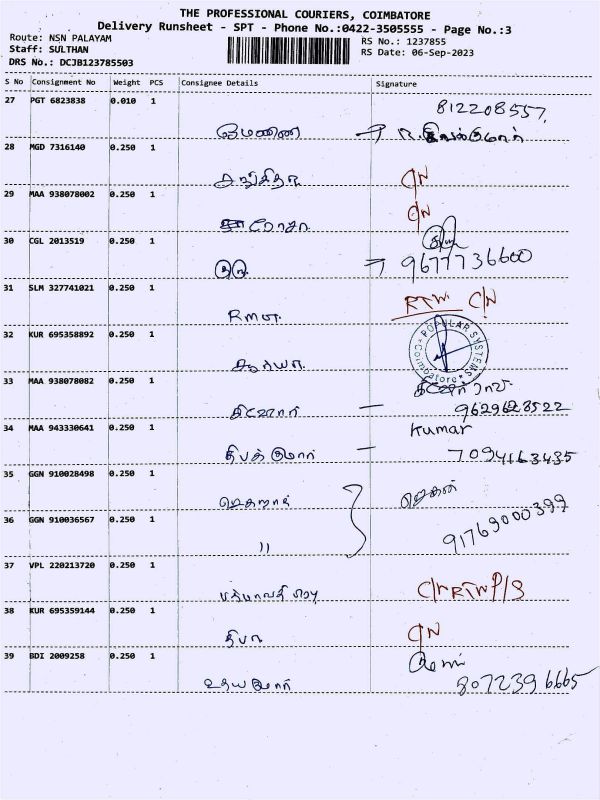 THE PROFESSIONAL COURIERS, COIMBATORE
Delivery Runsheet - SPT - Phone No.:0422-3505555 - Page No.:3
Route: NSN PALAYAM RS No.: 1237855
Staff: SULTHAN RS Date: 06-Sep-2023
DRS No.: DCJB123785503
S No Consignment No Weight PCS Consignee Details Signature
27 PGT 6823838 0.010 1 812208557
28 MGD 7316140 0.250 1
C/N
29 MAA 938078002 0.250 1 C/N
ரோசா
30 CGL 2013519 0.250 1
9677736600
31 SLM 327741021 0.250 1 RTW C/N
32 KUR 695358892 0.250 1 POPULAR SYSTEMS Coimbatore
சூர்யா
33 MAA 938078082 0.250 1
கிஷோர் - 9629628522
34 MAA 943330641 0.250 1 Kumar
தீபக் குமார் - 7094163435
35 GGN 910028498 0.250 1
ஜெகன்
36 GGN 910036567 0.250 1 91769000399
"
37 VPL 220213720 0.250 1 C/N RTW P/S
38 KUR 695359144 0.250 1 C/N
தீபா
39 BDI 2009258 0.250 1
உதயகுமார் 8072396665